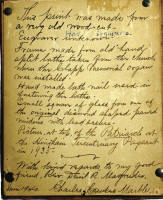 This print was made from
a very old wood-cut.
Engraver unknown.
Frame made from old hand
split laths taken from the church
when the Clapp Memorial organ
was installed.
Hand made lath nail used in
fastening the laths.
Small square of glass from one of
the original diamond shaped paned
windows with lead sashes.
Picture at top of the Patriarch as
at the Hingham Tercentenary Pageant
in 1935
With kind regards to my good
friend Rev.
Charles